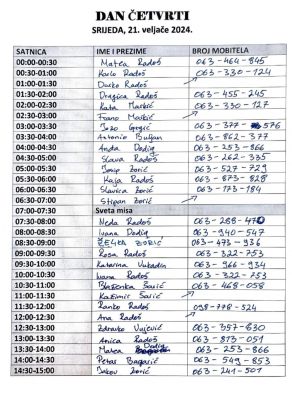 DAN ČETVRTI
SRIJEDA, 21. veljače 2024.
SATNICA IME I PREZIME BROJ MOBITELA
00:00-00:30 Matea Radoš 063-464-845
00:30-01:00 Karlo Radoš 063-330-124
01:00-01:30 Darko Radoš
01:30-02:00 Dragica Radoš 063-455-245
02:00-02:30 Kata Maškić 063-330-127
02:30-03:00 Franjo Maškić
03:00-03:30 Jozo Grgić 063-377-576
03:30-04:00 Antonio Buljan 063-862-377
04:00-04:30 Anđa Dodig 063-253-866
04:30-05:00 Slava Radoš 063-262-335
05:00-05:30 Josip Zorić 063-527-729
05:30-06:00 Kaja Radoš 063-873-828
06:00-06:30 Slavica Zorić 063-173-184
06:30-07:00 Stipan Zorić
07:00-07:30 Sveta misa
07:30-08:00 Neda Radoš 063-288-470
08:00-08:30 Ivana Dodig 063-940-547
08:30-09:00 ZORIĆ 063-473-936
09:00-09:30 Rosa Radoš 063-322-753
09:30-10:00 Katarina Vukadin 063-966-934
10:00-10:30 Ivana Radoš 063-322-753
10:30-11:00 Blaženka Šarić 063-468-058
11:00-11:30 Kazimir Šarić
11:30-12:00 Ranko Radoš 098-778-524
12:00-12:30 Ana Radoš
12:30-13:00 Zdravko Vujević 063-357-630
13:00-13:30 Anica Radoš 063-873-051
13:30-14:00 Matea Dodig 063-253-866
14:00-14:30 Petar Bagarić 063-549-853
14:30-15:00 Jakov Zorić 063-241-507